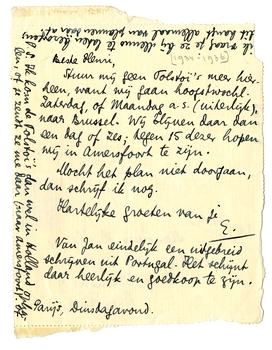 Beste Henri,
Stuur mij geen Tolstoï's meer hier-
heen, want wij gaan hoogstwschl.
Zaterdag, of Maandag a.s. (uiterlijk),
naar Brussel. Wij blijven daar dan
een dag of zes, tegen 15 dezer hopen
wij in Amersfoort te zijn.
Mocht het plan niet doorgaan,
dan schrijf ik nog.
Hartelijke groeten van je
E.
Van Jan eindelijk een uitgebreid
schrijven uit Portugal. Het schijnt
daar heerlijk en goedkoop te zijn.
Parijs, Dinsdagavond.
P.S. Ik kom de Tolstoï's dan wel in Holland
of je zendt ze me daar (naar Amersfoort).